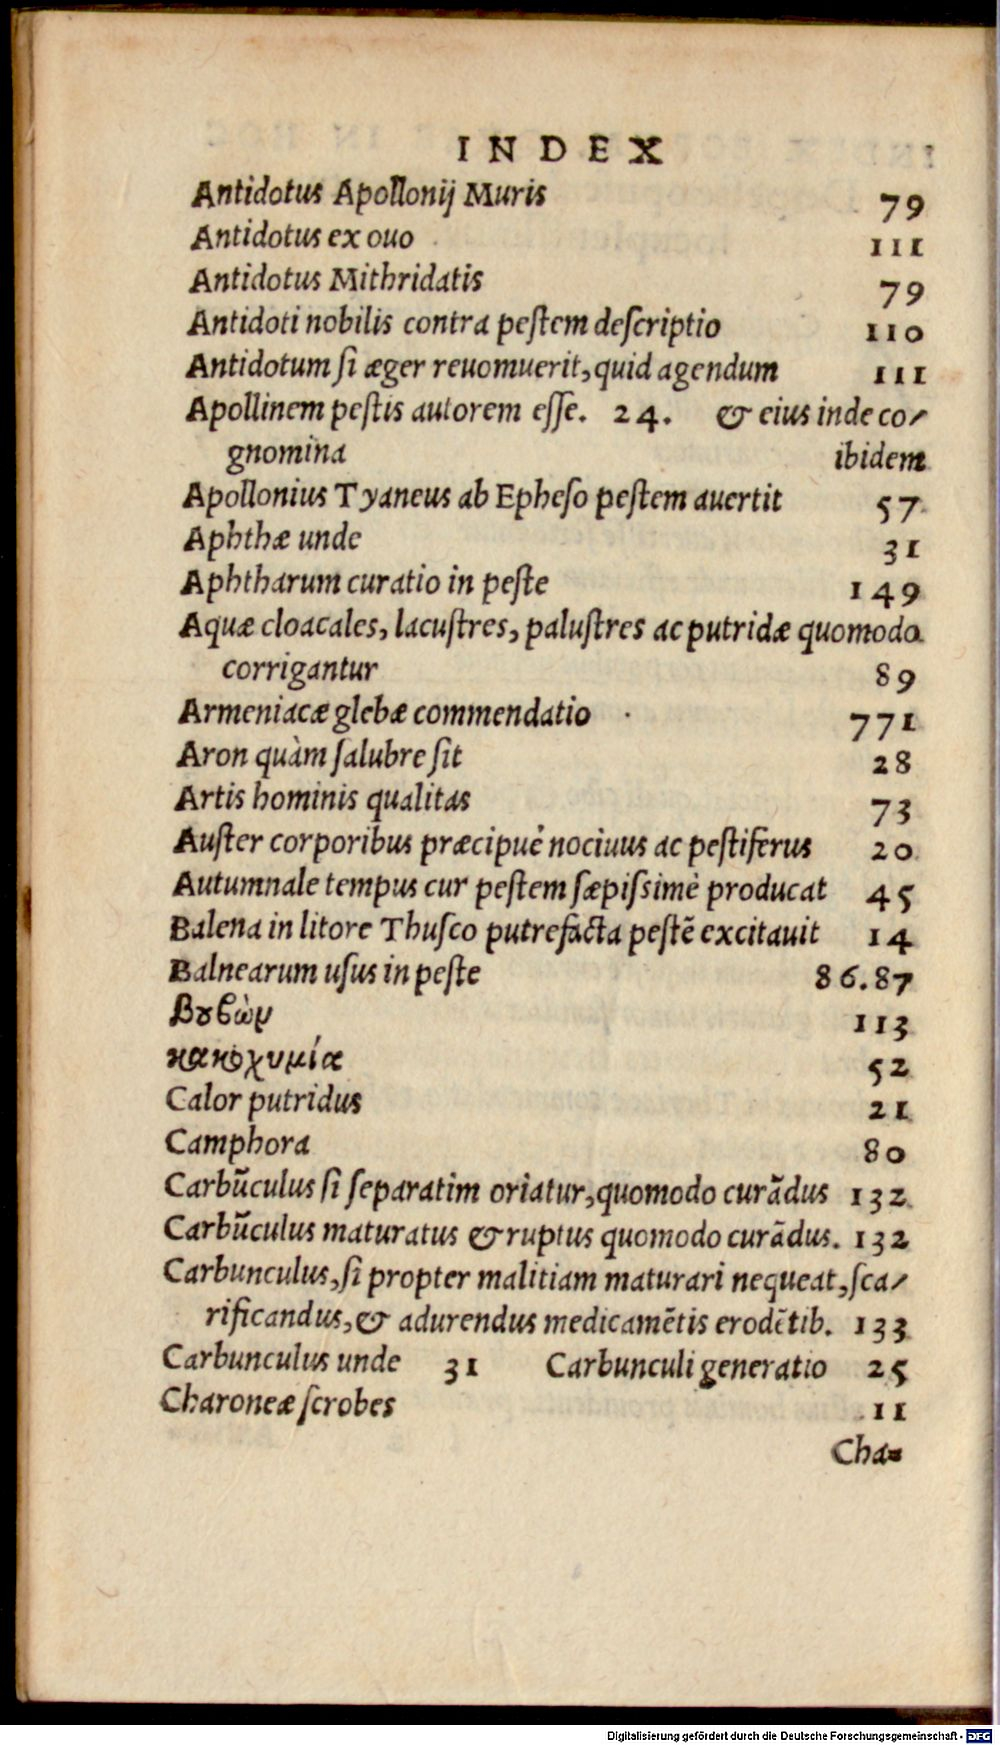 INDEX
Antidotus Apollonij Muris 79
Antidotus ex ouo 111
Antidotus Mithridatis 79
Antidoti nobilis contra peſtem deſcriptio 110
Antidotum ſi æger reuomuerit, quid agendum 111
Apollinem peſtis autorem eſſe. 24. & eius inde co-
gnomina ibidem
Apollonius Tyaneus ab Epheſo peſtem auertit 57
Aphthæ unde 31
Aphtharum curatio in peſte 149
Aquæ cloacales, lacuſtres, paluſtres ac putridæ quomodo
corrigantur 89
Armeniacæ glebæ commendatio 771
Aron quàm ſalubre ſit 28
Artis hominis qualitas 73
Auſter corporibus præcipuè nociuus ac peſtiferus 20
Autumnale tempus cur peſtem ſæpiſsimè producat 45
Balena in litore Thuſco putrefacta peſtẽ excitauit 14
Balnearum uſus in peſte 86.87
Βȣβὼν 113
κακοχυμία 52
Calor putridus 21
Camphora 80
Carbũculus ſi ſeparatim oriatur, quomodo curãdus 132
Carbũculus maturatus & ruptus quomodo curãdus. 132
Carbunculus, ſi propter malitiam maturari nequeat, ſca-
rificandus, & adurendus medicamẽtis erodẽtib. 133
Carbunculus unde 31 Carbunculi generatio 25
Charoneæ ſcrobes 11
Cha=
Digitalisierung gefördert durch die Deutsche Forschungsgemeinschaft - DFG